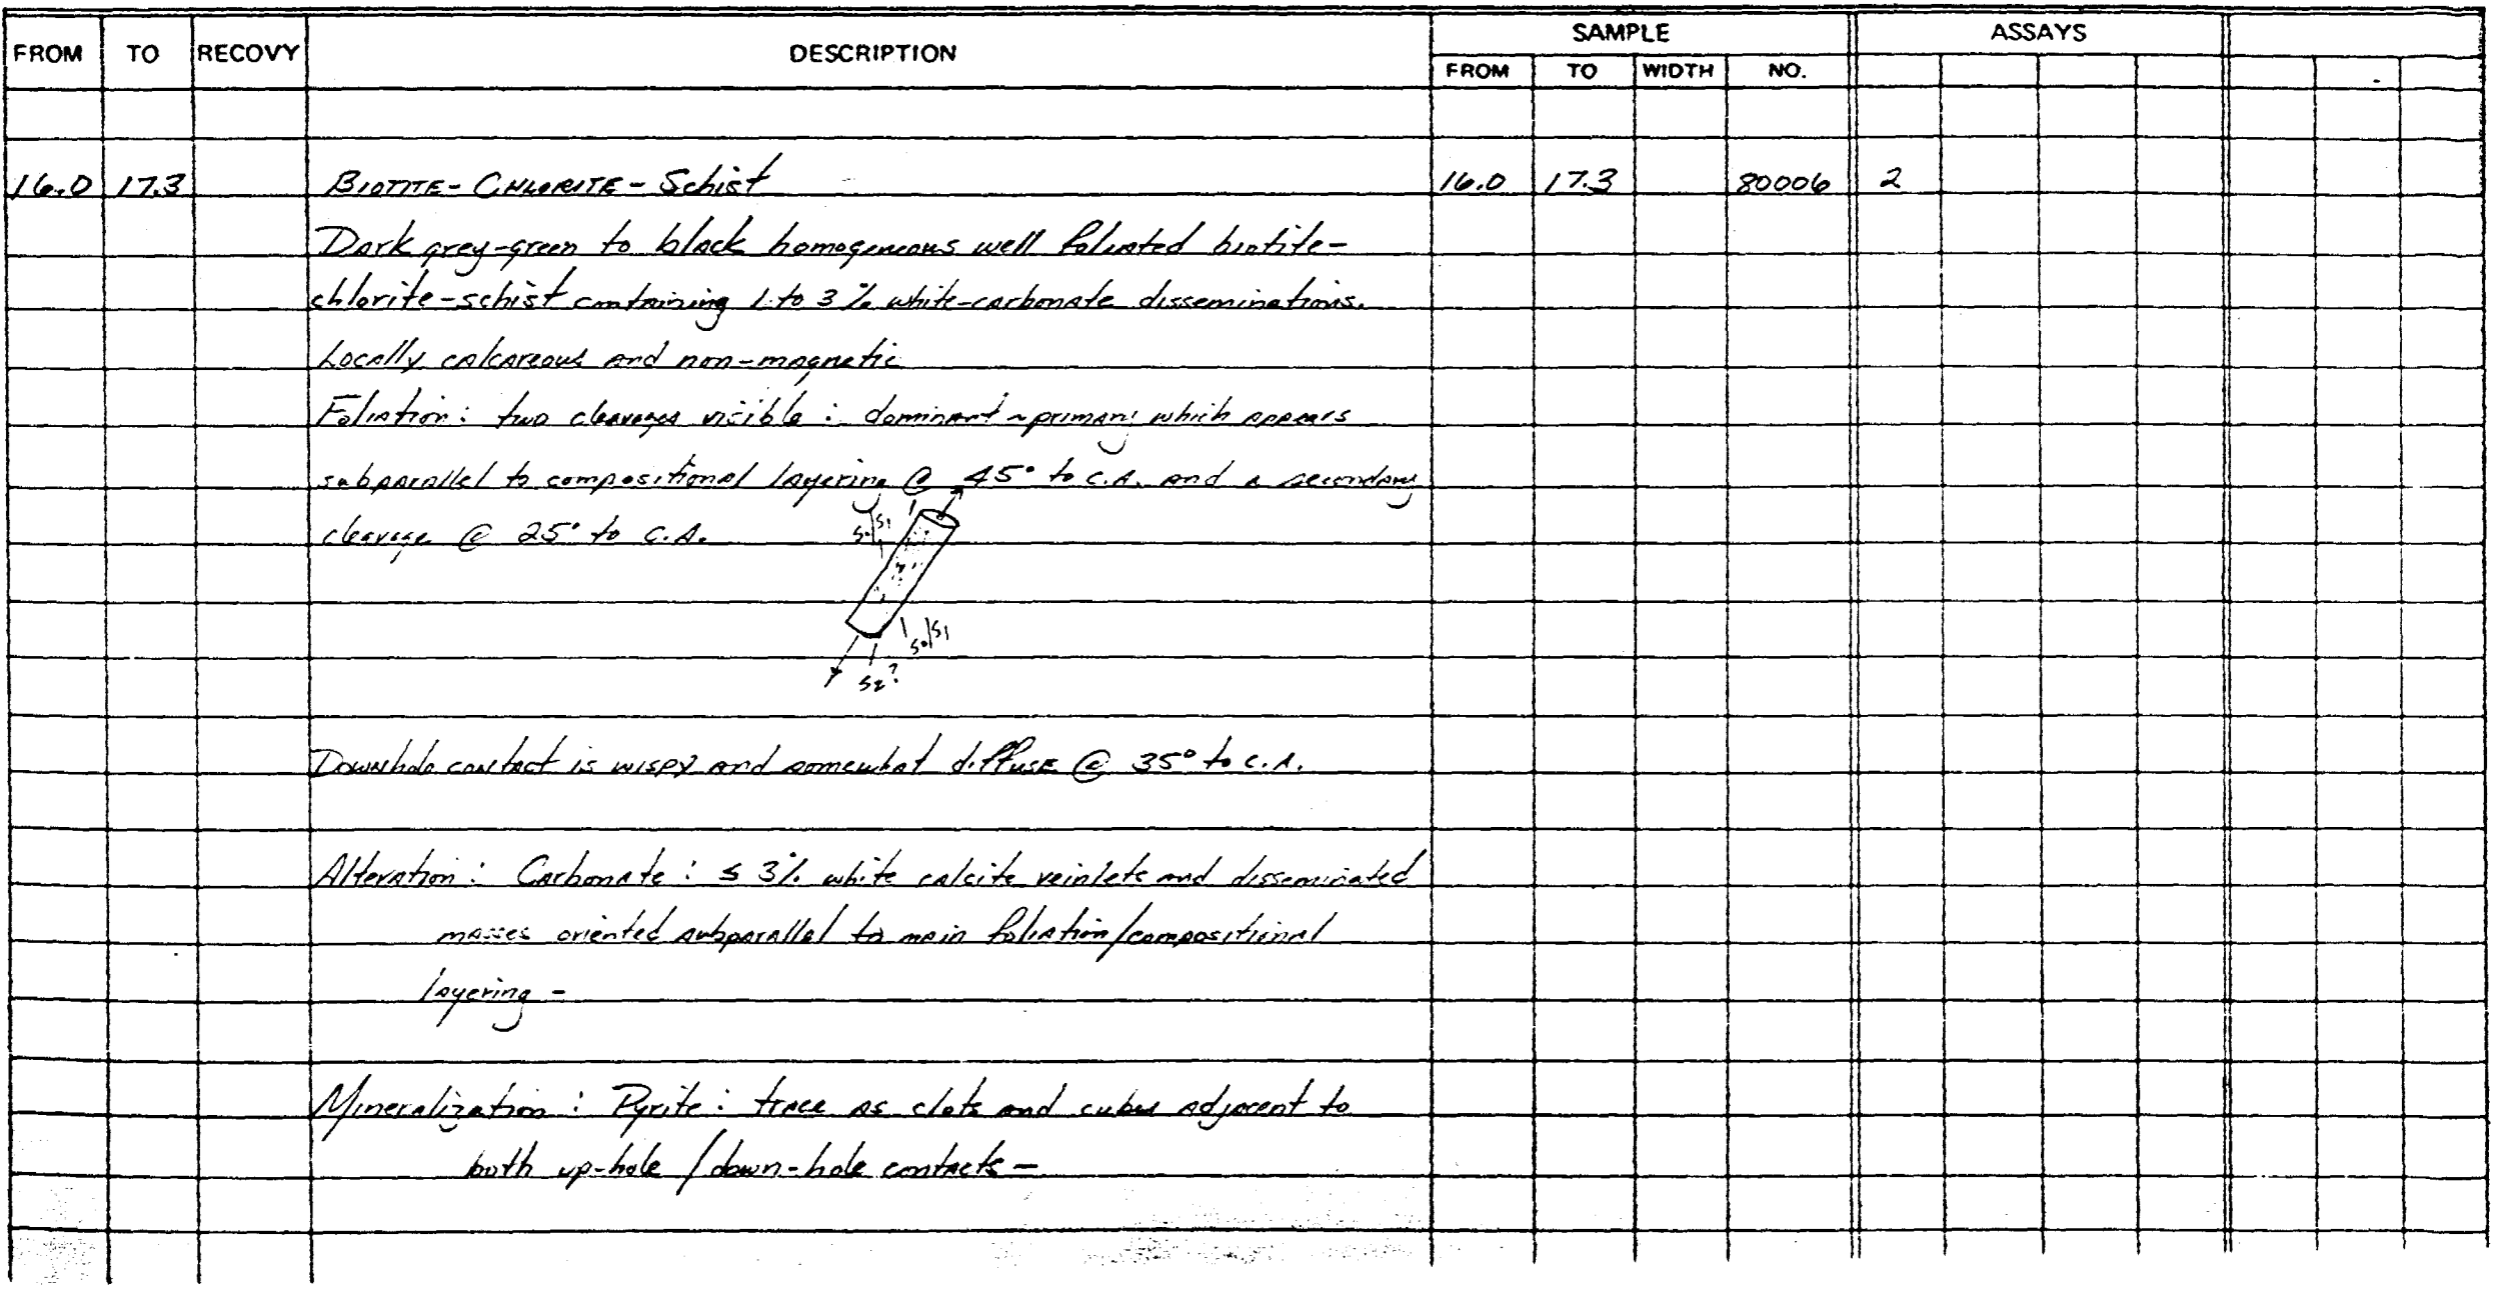 SAMPLE ASSAYS
FROM TO RECOVY DESCRIPTION
FROM TO WIDTH NO.
16.0 17.3 BIOTITE-CHLORITE-Schist 16.0 17.3 80006 2
Dark grey-green to black homogeneous well foliated biotite-
chlorite-schist containing 1 to 3% white-carbonate disseminations.
Locally calcareous and non-magnetic
Foliation: two cleavages visible: dominant ~primary which appears
subparallel to compositional layering @ 45° to C.A. and a secondary
cleavage @ 25° to C.A.
S0/S1
S0/S1
S2?
Downhole contact is wispy and somewhat diffuse @ 35° to C.A.
Alteration: Carbonate: ≤ 3% white calcite veinlets and disseminated
masses oriented subparallel to main foliation/compositional
layering -
Mineralization: Pyrite: trace as clots and cubes adjacent to
both up-hole/down-hole contacts -